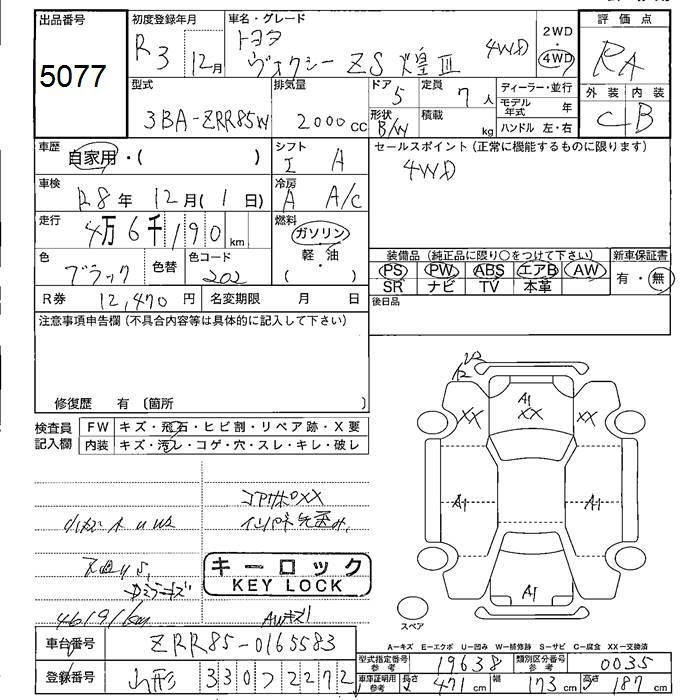 出品番号
5077
初度登録年月
R3 12月
車名・グレード
トヨタ
ヴォクシー ZS 煌Ⅲ 4WD
2WD
・
4WD
評価点
RA
外装 内装
C B
型式
3BA-ZRR85W
排気量
2000cc
ドア
5
形状
B/W
定員
7人
積載
kg
ディーラー・並行
モデル年式 年
ハンドル 左・右
車歴
自家用・( )
シフト
I A
セールスポイント(正常に機能するものに限ります)
4WD
車検
R8年 12月(1日)
冷房
A A/C
走行
4万6千190km
燃料
ガソリン
軽・油
( )
色
ブラック
色替
色コード
202
装備品(純正品に限り○をつけて下さい)
PS PW ABS エアB AW
SR ナビ TV 本革
新車保証書
有・無
R券 12,470円
名変期限 月 日
後日品
注意事項申告欄(不具合内容等は具体的に記入して下さい)
修復歴 有〔箇所 〕
検査員記入欄
FW キズ・飛石・ヒビ割・リペア跡・X要
内装 キズ・汚レ・コゲ・穴・スレ・キレ・破レ
コアサポXX
キーロック
KEY LOCK
46191km
AWキズ1
A1
XX
XX
XX
A1
A1
A1
スペア
A-キズ E-エクボ U-凹み W-補修跡 S-サビ C-腐食 XX-交換済
車台番号 ZRR85-0165583
登録番号 山形 330 フ 2272
型式指定番号参考 19638
類別区分番号参考 0035
車庫証明用参考 長さ 471cm 幅 173cm 高さ 187cm